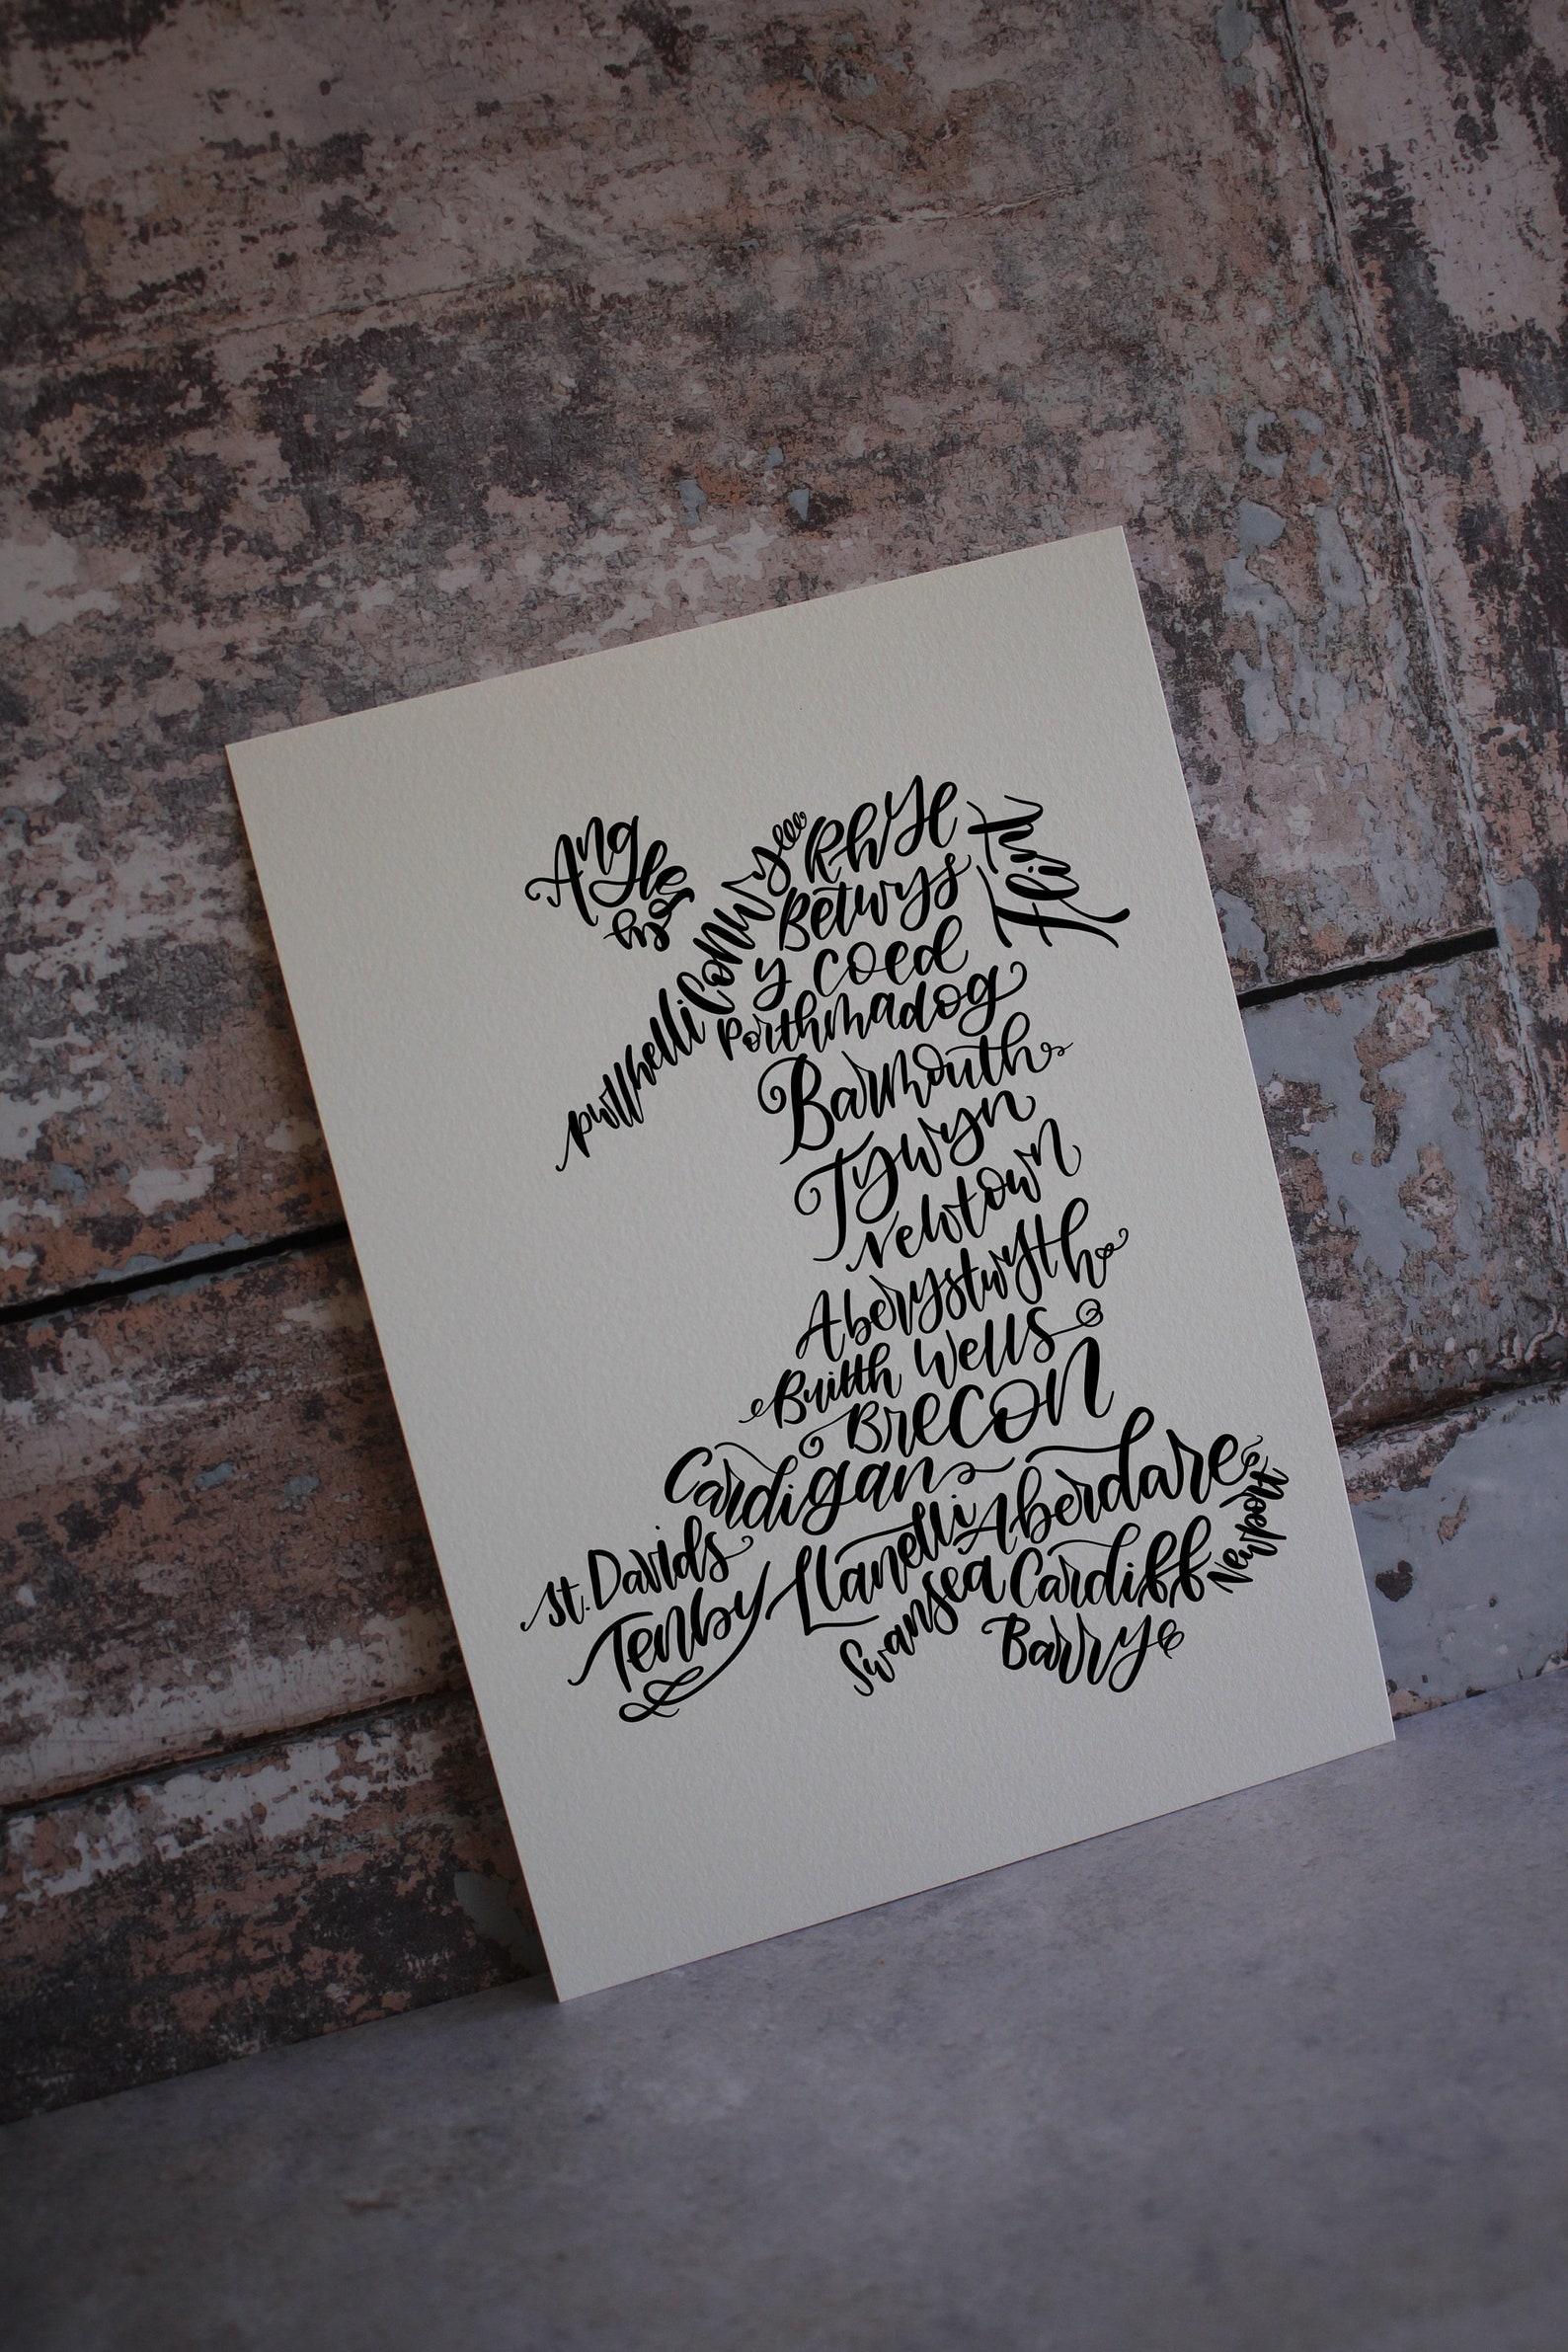 Anglesey
Conwy
Rhyl
Flint
Betwys
y coed
pwllhelli
Porthmadog
Barmouth
Tywyn
newtown
Aberystwyth
Builth Wells
Brecon
Cardigan
Aberdare
Newport
St. Davids
Llanelli
Tenby
Swansea
Cardiff
Barry